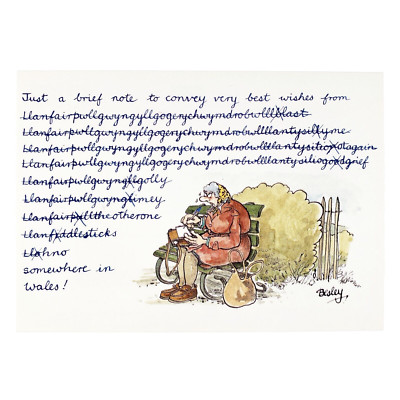 Just a brief note to convey very best wishes from
Llanfairpwllgwyngyllgogerychwyrndrobwlllblast
Llanfairpwllgwyngyllgogerychwymdrobwllllantysillyme
Llanfairpwllgwyngyllgogerychwymdrobwllllantysilioxotsagain
Llanfairpwllgwyngyllgogerychwymdrobwllllantysiliogoodgrief
Llanfairpwllgwyngyllgolly
Llanfairpwllgwyngliney
Llanfairpwlltheotherone
Llanfxddlesticks
Llohno
somewhere in
wales!
Besley